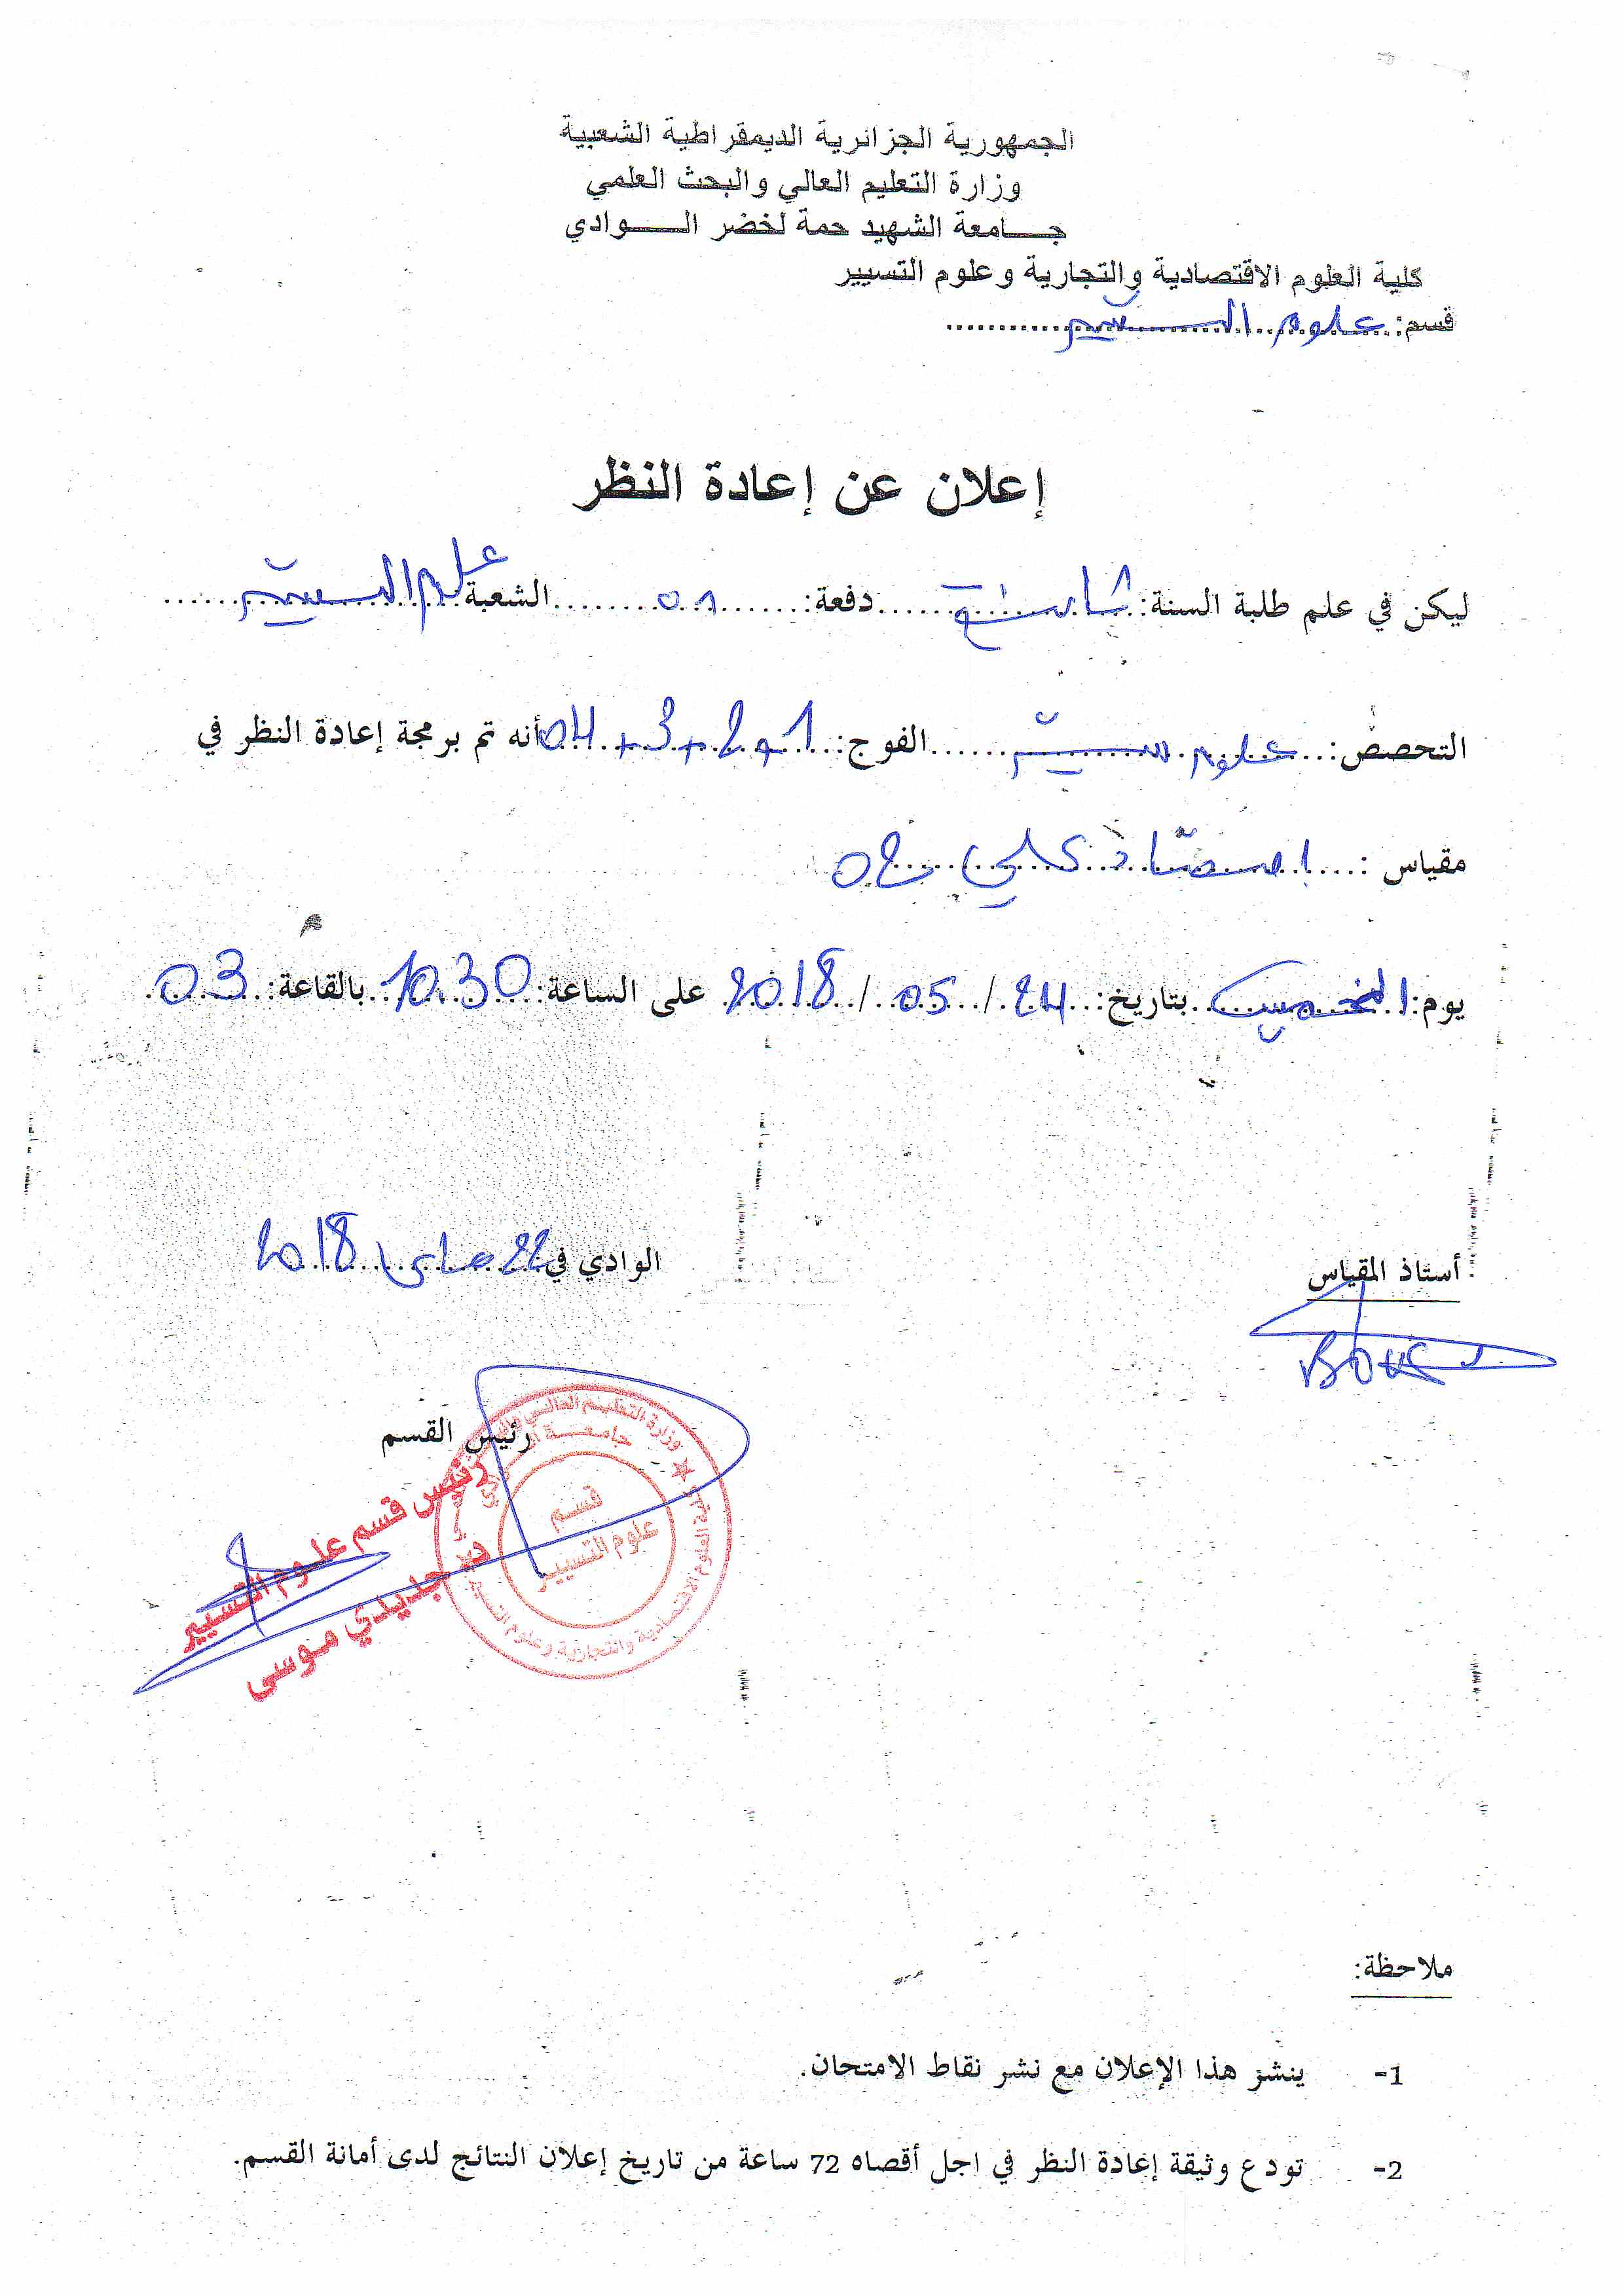 الجمهورية الجزائرية الديمقراطية الشعبية
وزارة التعليم العالي والبحث العلمي
جـــامعة الشهيد حمة لخضر الـــــوادي
كلية العلوم الاقتصادية والتجارية وعلوم التسيير
قسم: علوم التسيير
إعلان عن إعادة النظر
ليكن في علم طلبة السنة: ثانية دفعة: 01 الشعبة علوم التسيير
التخصص: علوم تسيير الفوج: 1+2+3+04 أنه تم برمجة إعادة النظر في
مقياس : اقتصاد كلي 02
يوم: الخميس بتاريخ: 24 / 05 / 2018 على الساعة: 10.30 بالقاعة: 03
أستاذ المقياس
الوادي في 22 ماي 2018
رئيس القسم
رئيس قسم علوم التسيير
د. جديدي موسى
قسم
علوم التسيير
كلية العلوم الاقتصادية والتجارية وعلوم التسيير
ملاحظة:
1- ينشر هذا الإعلان مع نشر نقاط الامتحان.
2- تودع وثيقة إعادة النظر في اجل أقصاه 72 ساعة من تاريخ إعلان النتائج لدى أمانة القسم.